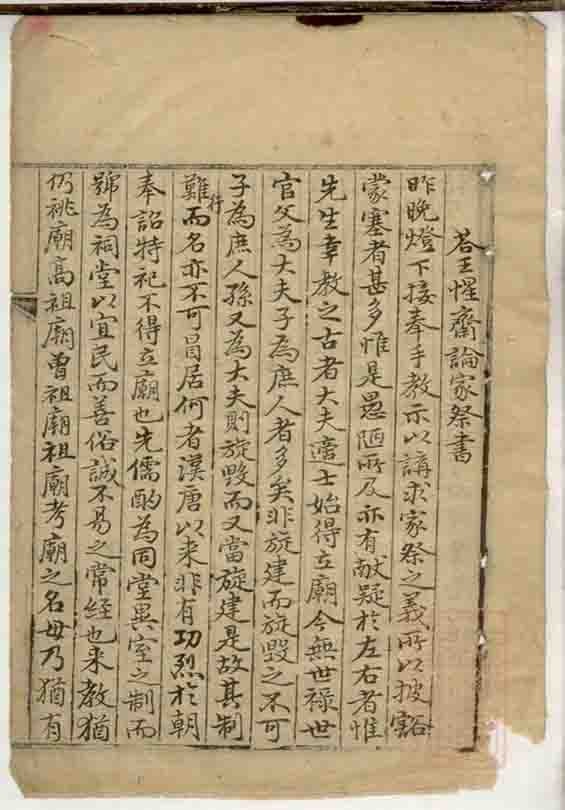 荅王惺齋論家祭書
昨晚燈下接奉手教示以講求家祭之義所以披豁
蒙塞者甚多惟是愚陋所及亦有献疑於左右者惟
先生幸教之古者大夫適士始得立廟今無世禄世
官父為大夫子為庶人者多矣非旋建而旋毁之不可
子為庶人孫又為大夫則旋毁而又當旋建是故其制
難行而名亦不可冐居何者漢唐以来非有功烈於朝
奉詔特祀不得立廟也先儒酌為同堂異室之制而
號為祠堂以宜民而善俗誠不易之常経也来教猶
仍祧廟高祖廟曽祖廟祖廟考廟之名毋乃猶有